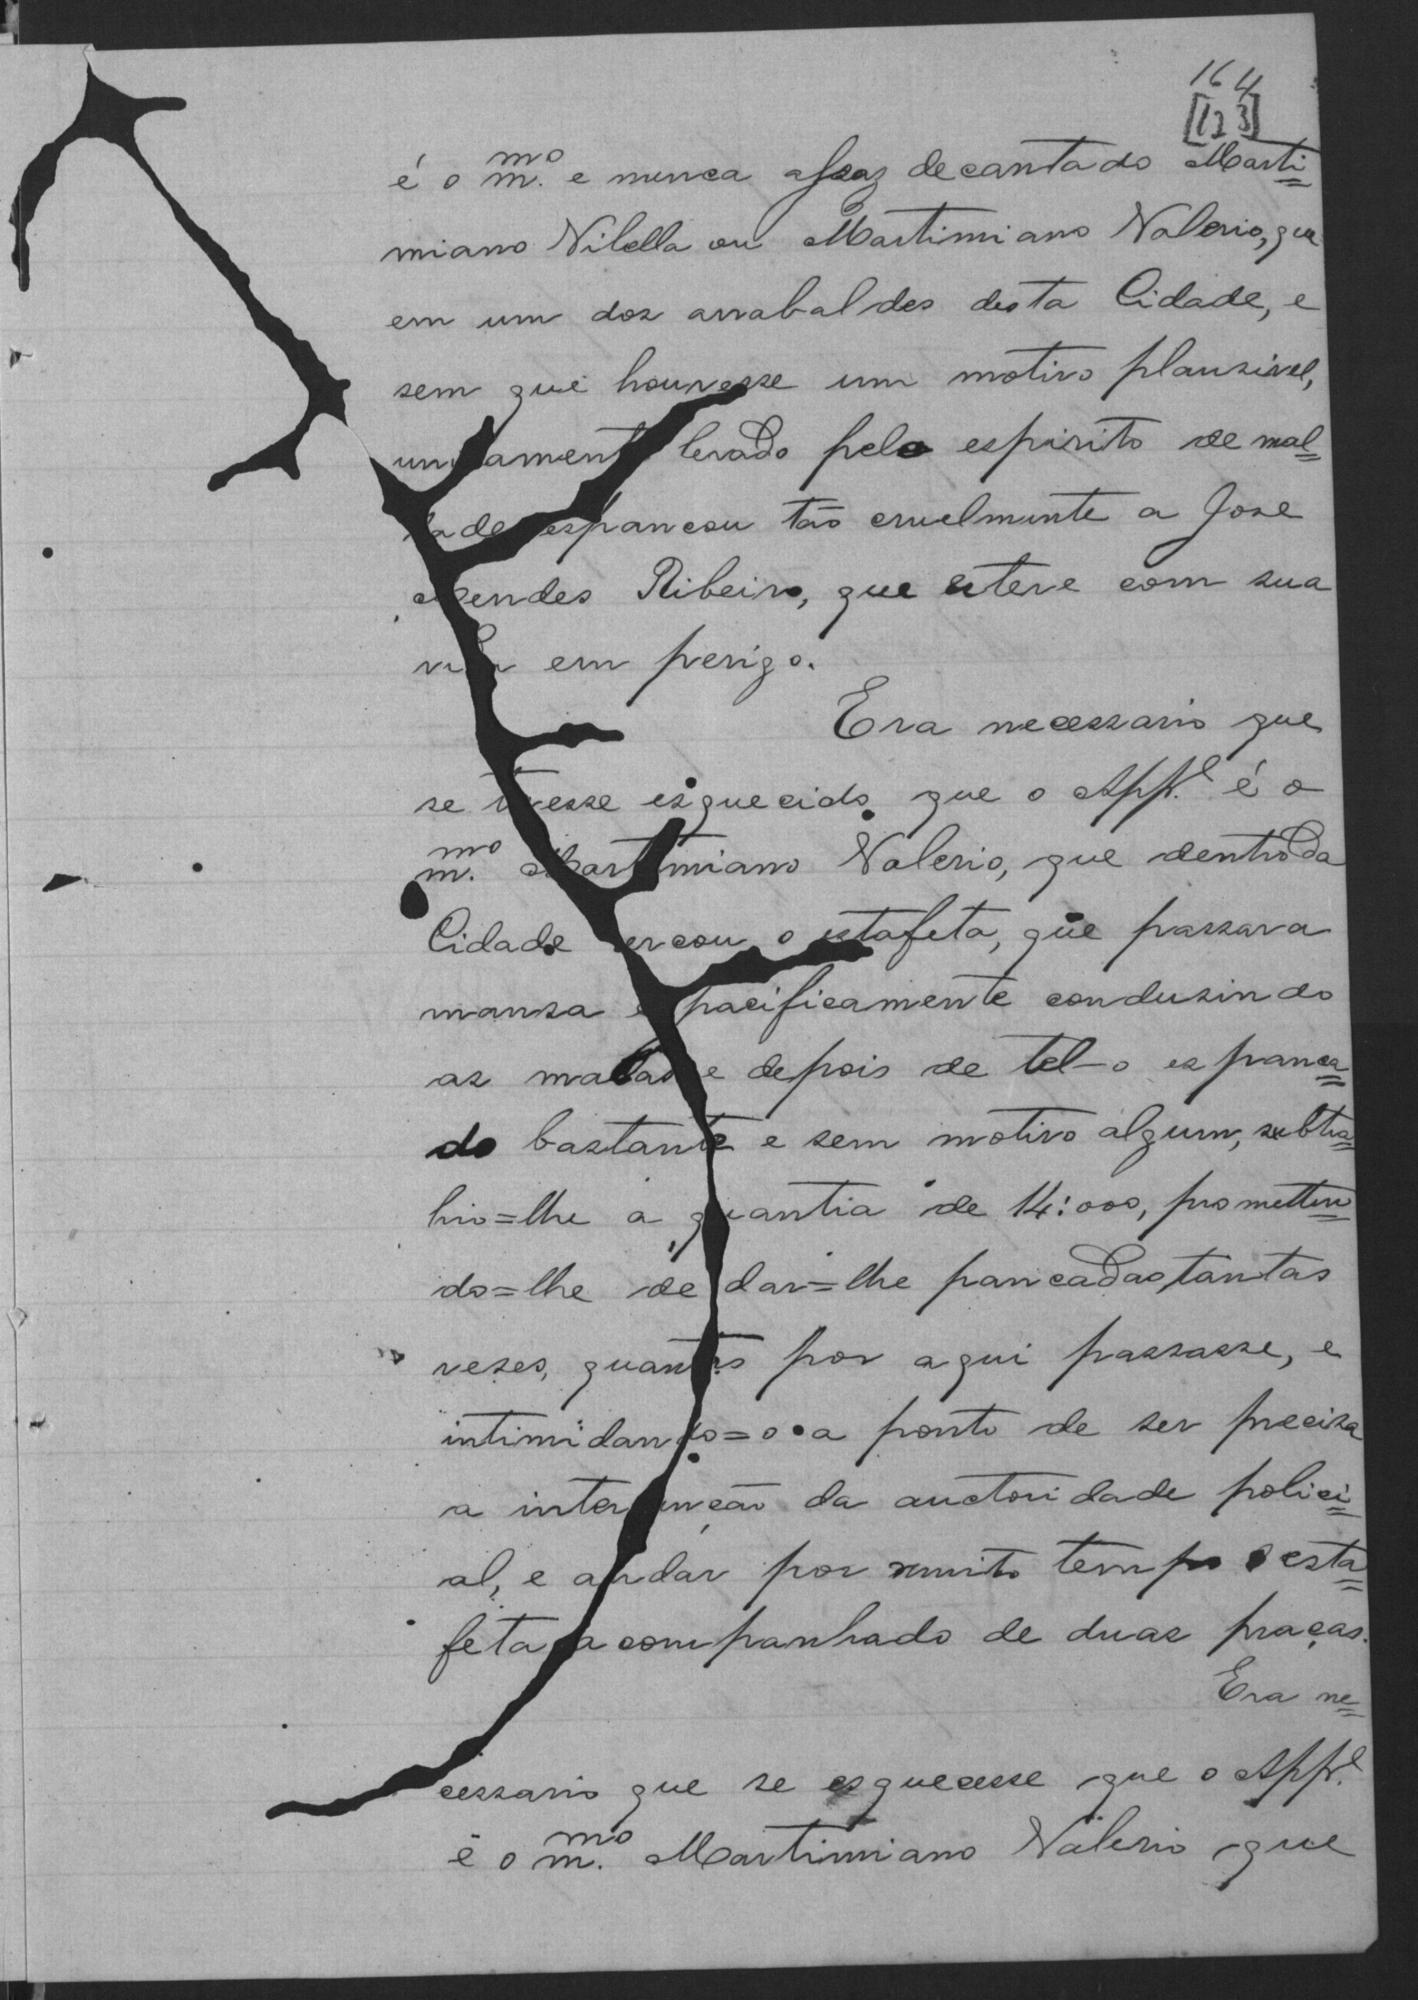 164
[123]
é o m.mo e nunca assaz decantado Marti=
miano Vilella ou Martimiano Valerio, que
em um dos arrabaldes desta Cidade, e
sem que houvesse um motivo plausivel,
unicamente levado pelo espirito de mal=
dade espancou tão cruelmente a Jose
Mendes Ribeiro, que esteve com sua
vida em perigo.
Era necessario que
se tivesse esquecido que o App.e é o
m.mo Martimiano Valerio, que dentro da
Cidade cercou o estafeta, que passava
mansa e pacificamente condusindo
as malas e depois de tel-o espanca=
do bastante e sem motivo algum, subtra=
hio=lhe a quantia de 14:000, prometten=
do=lhe de dar=lhe pancadas tantas
veses, quantas por aqui passasse, e
intimidando=o a ponto de ser precisa
a intervenção da auctoridade polici=
al, e andar por muito tempo o esta=
feta acompanhado de duas praças.
Era ne=
cessario que se esquecesse que o App.e
é o m.mo Martimiano Valerio que